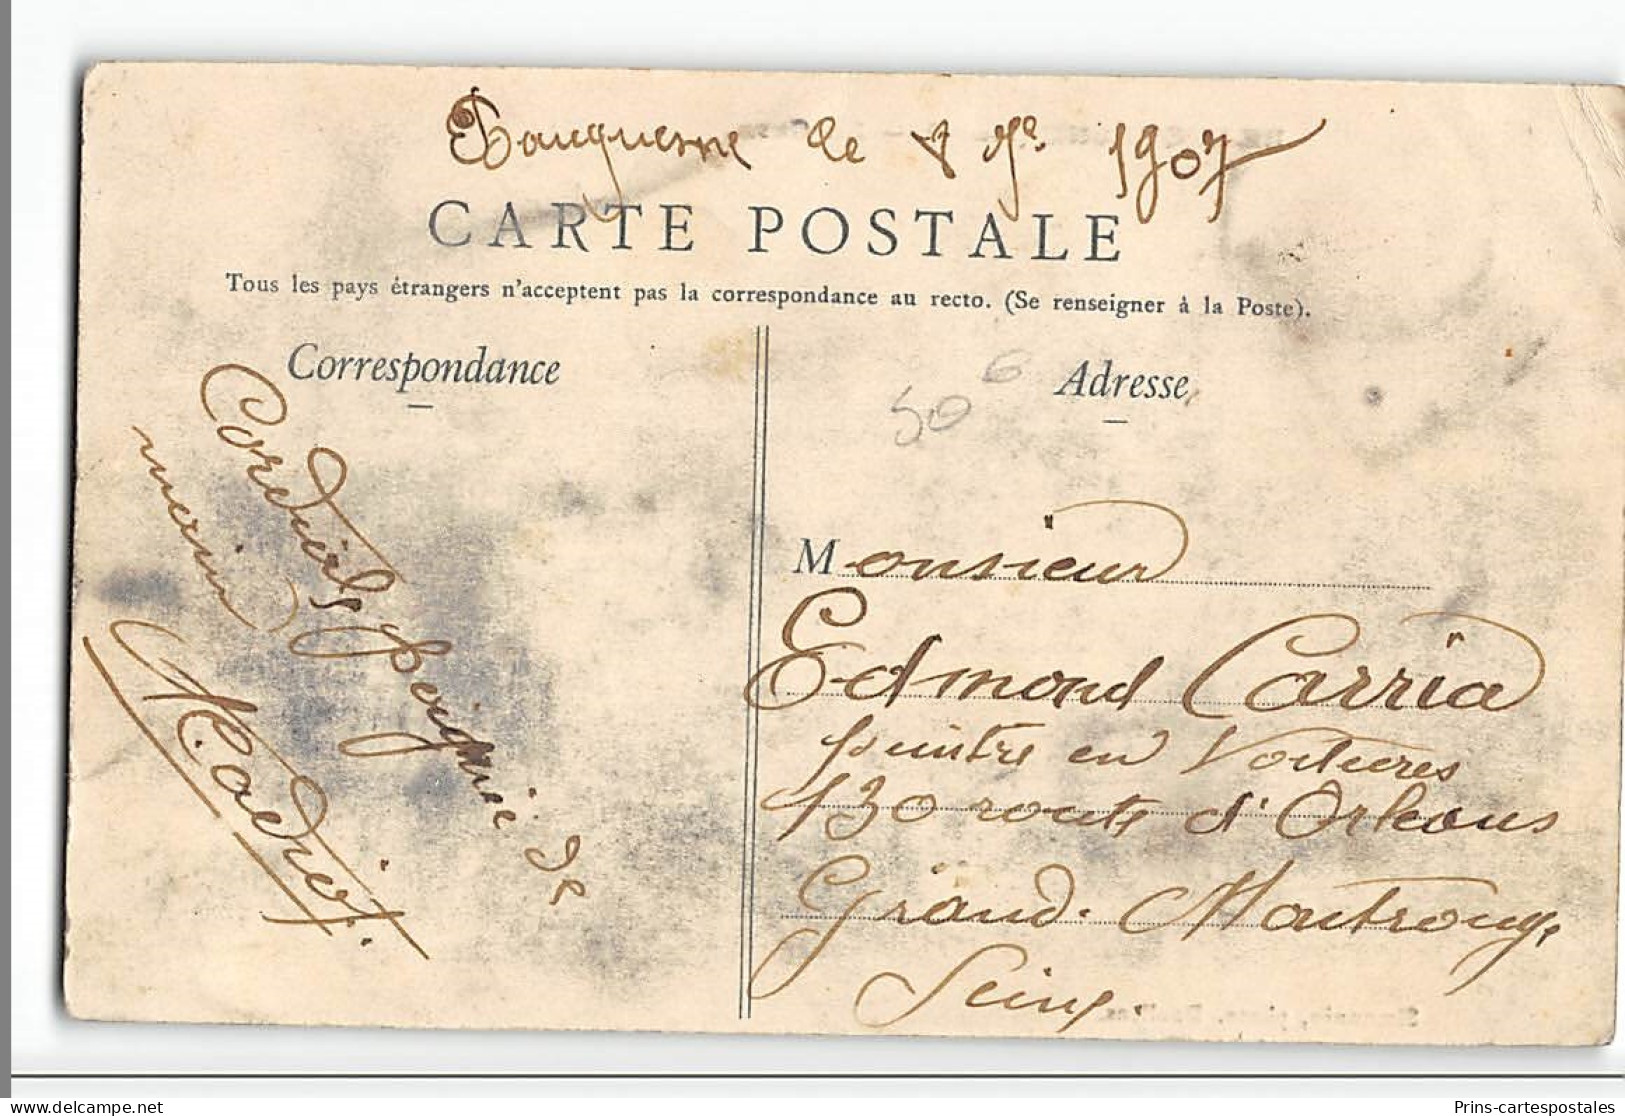 le 8 1907
CARTE POSTALE
Tous les pays étrangers n'acceptent pas la correspondance au recto. (Se renseigner à la Poste).
Correspondance
Adresse
50 6
Cordiale poignée de
main
Madiot.
Monsieur
Edmond Carria
peintre en Voitures
130 route d'Orleans
Grand. Montrouge
Seine.
Prins-cartespostales